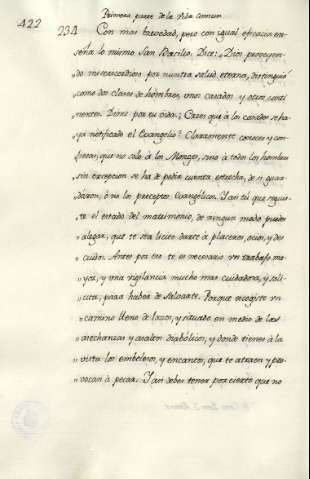 Primera parte de la Vida comun.
422
234 Con mas brevedad, pero con igual eficacia en-
seña lo mismo San Basilio. Dice: „Dios proveyen-
do misericordioso por nuestra salud eterna, distinguió
como dos clases de hombres, unos casados y otros conti-
nentes. Dime por tu vida: ¿Crees que á los casados se ha-
ya notificado el Evangelio? Claramente conoces y con-
fiesas, que no solo á los Monges, sino á todos los hombres
sin excepcion se ha de pedir cuenta estrecha, de si guar-
dáron, ó no los preceptos Evangélicos. Y asi tú que seguis-
te el estado del matrimonio, de ningun modo puedes
alegar, que te sea licito darte á placeres, ocio, y des-
cuido. Antes por eso te es necesario un trabajo ma-
yor, y una vigilancia mucho mas cuidadosa, y soli-
cita, para haber de salvarte. Porque escogiste un
camino lleno de lazos, y situado en medio de las
asechanzas y asaltos diabólicos, y donde tienes á la
vista los embelesos, y encantos, que te atraen y pro-
vocan á pecar. Y asi debes tener por cierto que no